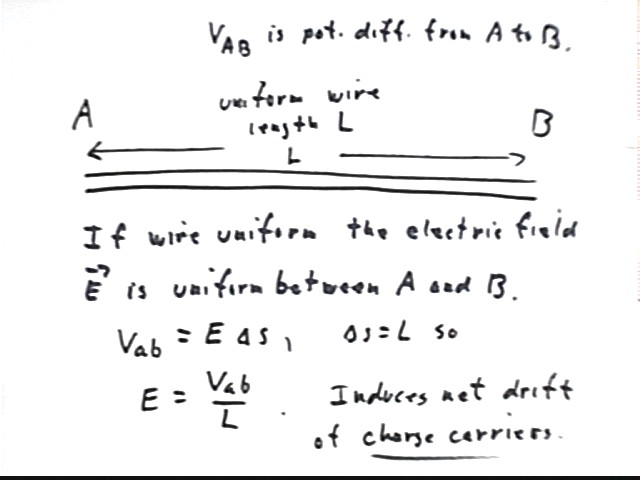 V_AB is pot. diff. from A to B.
uniform wire
A length L B
L
If wire uniform the electric field
E⃗ is uniform between A and B.
Vab = E Δs, Δs = L so
E = Vab / L . Induces net drift
of charge carriers.